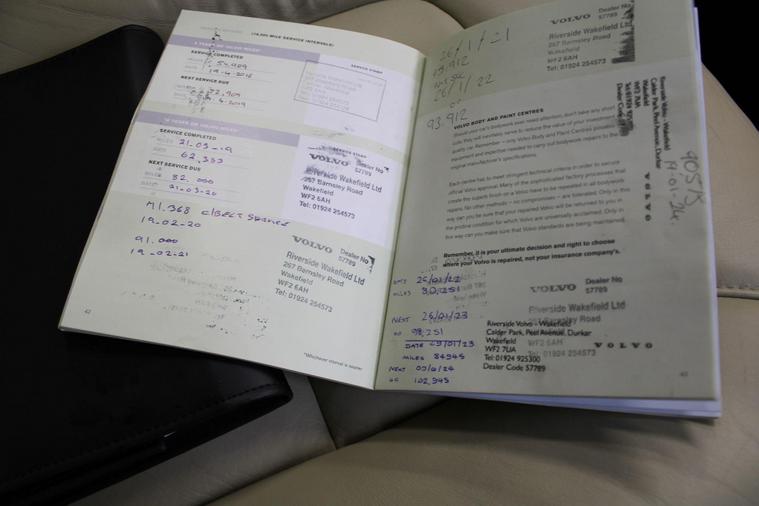 (18,000 MILE SERVICE INTERVALS)
SERVICE COMPLETED
54,909
19-4-2018
NEXT SERVICE DUE
72,909
SERVICE STAMP
SERVICE COMPLETED
MILES 21-03-19
DATE 62,353
NEXT SERVICE DUE
82.000
21-03-20
SERVICE STAMP
VOLVO Dealer No
57789
Riverside Wakefield Ltd
267 Barnsley Road
Wakefield
WF2 6AH
Tel: 01924 254573
71.368
19-02-20
91.000
19-02-21
VOLVO Dealer No
57789
Riverside Wakefield Ltd
267 Barnsley Road
Wakefield
WF2 6AH
Tel: 01924 254573
*Whichever interval is sooner
42
26/1/21
26/1/22
or
93.912
VOLVO Dealer No
57789
Riverside Wakefield Ltd
267 Barnsley Road
Wakefield
WF2 6AH
Tel: 01924 254573
VOLVO BODY AND PAINT CENTRES
Should your car's bodywork ever need attention, don't take any short
cuts; they will inevitably serve to reduce the value of your investment
quality car. Remember – only Volvo Body and Paint Centres possess
equipment and expertise needed to carry out bodywork repairs to the
original manufacturer's specifications.
Each centre has to meet stringent technical criteria in order to secure
official Volvo Approval. Many of the sophisticated factory processes that
create the superb finish on a Volvo have to be repeated in all bodywork
repairs. No other methods – no compromises – are tolerated. Only in this
way can you be sure that your repaired Volvo will be returned to you in
the pristine condition for which Volvo are universally acclaimed. Only in
this way can you make sure that Volvo standards are being maintained.
Remember, it is your ultimate decision and right to choose
where your Volvo is repaired, not your insurance company's.
Riverside Volvo - Wakefield
Calder Park, Peel Avenue, Durkar
Wakefield
WF2 7UA
Dealer Code
VOLVO
90573
19.01.24
DATE 26/01/22
MILES 80,251
NEXT 26/01/23
OR 98,251
DATE 09/01/23
MILES 84945
NEXT 09/01/24
OR 102,945
VOLVO Dealer No
57789
Riverside Wakefield Ltd
267 Barnsley Road
WF2 6AH
01924 254573
Riverside Volvo - Wakefield
Calder Park, Peel Avenue, Durkar
Wakefield
WF2 7UA
Tel: 01924 925300
Dealer Code 57789
VOLVO